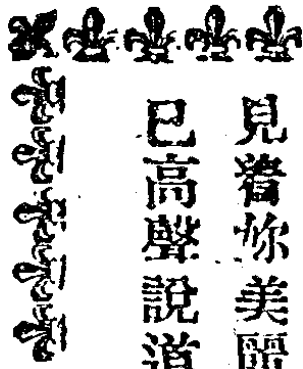 見着你美麗
已高聲說道